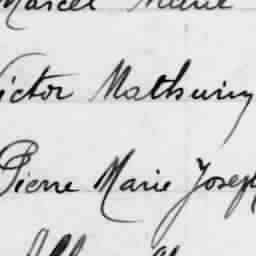 Marcel
Victor Mathurin
Pierre Marie Joseph